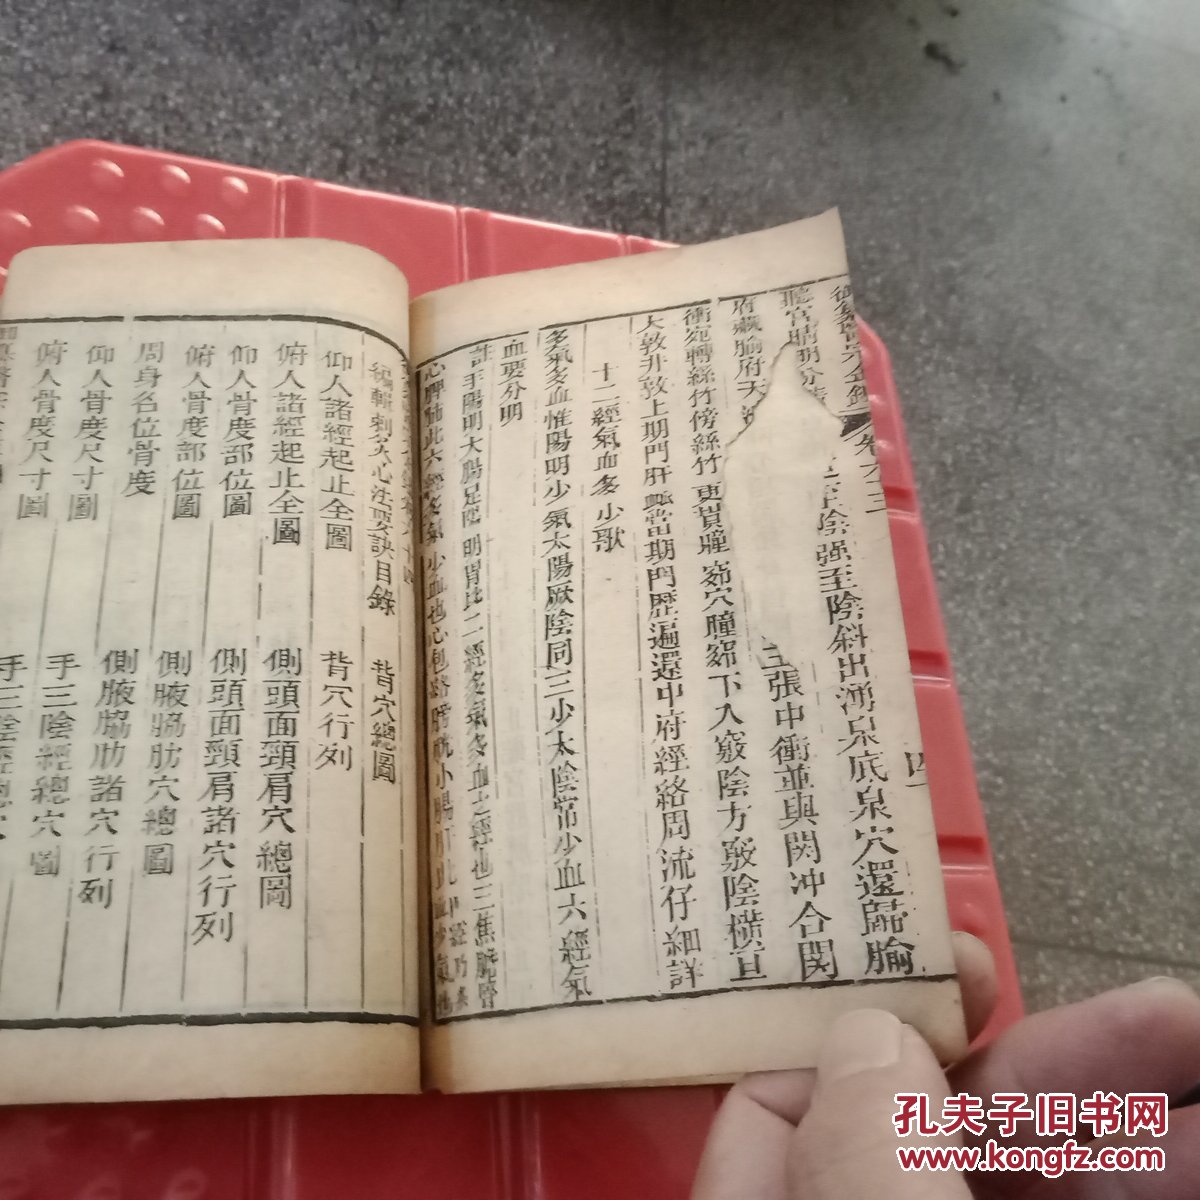 御纂醫宗金鑑 卷六十三 四
至陰强至陰斜出湧泉底泉穴還歸腧
聽宮睛明分
主張中衝並與関冲合関
府藏腧府天
衝宛轉絲竹傍絲竹更貫瞳窌穴瞳窌下入竅陰方竅陰橫直
大敦升敦上期門肝
當期門歷遍還中府經絡周流仔細詳
十二經氣血多少歌
多氣多血惟陽明少氣太陽厥陰同二少太陰常少血六經氣
血要分明
註手陽明大腸足陽明胃此二經多氣多血之經也三焦腎
心脾肺此六經多氣少血也心包
編輯刺灸心法要訣目錄
背穴總圖
仰人諸經起止全圖
背穴行列
俯人諸經起止全圖
側頭面頸肩穴總圖
仰人骨度部位圖
側頭面頸肩諸穴行列
俯人骨度部位圖
側腋脇肋穴總圖
周身名位骨度
側腋脇肋諸穴行列
仰人骨度尺寸圖
手三陰經總穴圖
俯人骨度尺寸圖
手三陰經
孔夫子旧书网
www.kongfz.com